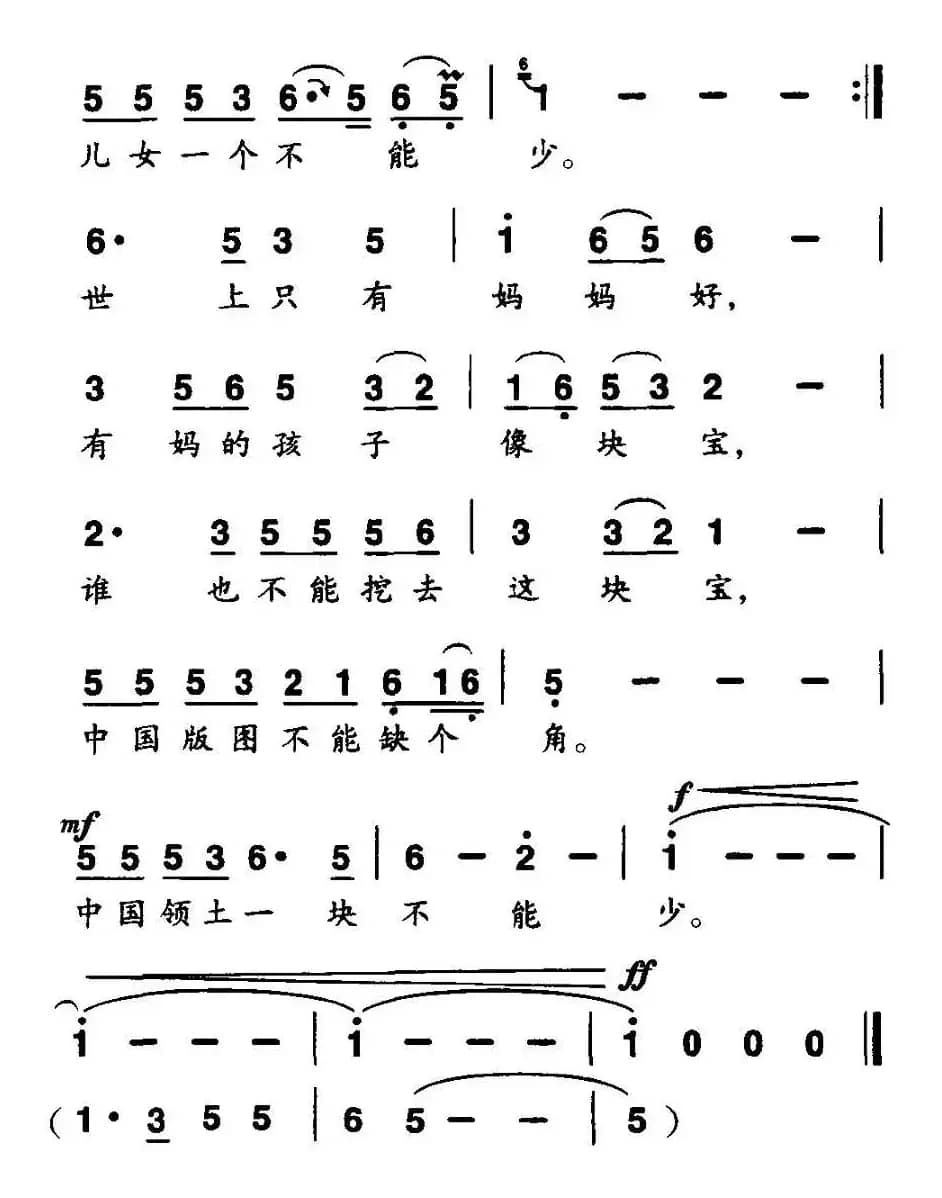 5 5 5 3 6 · 5 6 5 | 6 1 － － － :‖
儿女一个不 能 少。
6 · 5 3 5 | 1 6 5 6 － |
世 上只有 妈妈好，
3 5 6 5 3 2 | 1 6 5 3 2 － |
有 妈的孩子 像块宝，
2 · 3 5 5 5 6 | 3 3 2 1 － |
谁 也不能挖去 这块宝，
5 5 5 3 2 1 6 1 6 | 5 － － － |
中国版图不能缺个 角。
mf f
5 5 5 3 6 · 5 | 6 － 2 － | 1 － － － |
中国领土一 块 不 能 少。
ff
1 － － － | 1 － － － | 1 0 0 0 ‖
（1 · 3 5 5 | 6 5 － － | 5）